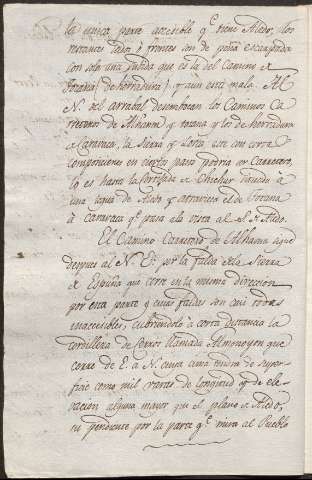 la unica parte accesible q.e tiene Aledo, los
restantes lados, ó frentes son de peña escarpada
con sola una subida que es la del Camino de
totana (de herradura) y aun esta mala. Al
N. del arrabal desembocan los Caminos Ca
rreteros de Alhama y totana y los de herradura
a Caravaca, la Sierra y Lorca, este con corta
composicion en ciertos pasos podria ser Carretero,
lo es hasta la Cortijada de Chichar situada á
una legua de Aledo y atraviesa el de totana
á Caravaca q.e pasa ala vista al S. de Aledo.
El Camino Carretero de Alhama sigue
despues al N. E. por la falda de la Sierra
de España que corre en la misma direccion
por esta parte y cuias faldas son casi todas
inaccesibles, cubriendole á corta distancia la
cordillera de Cerros llamada Almoreyen que
corre de E. a N. cuya cima tendra de super-
ficie como mil varas de longitud y de ele-
vacion alguna mayor que el plano de Aledo,
su pendiente por la parte q.e mira al Pueblo